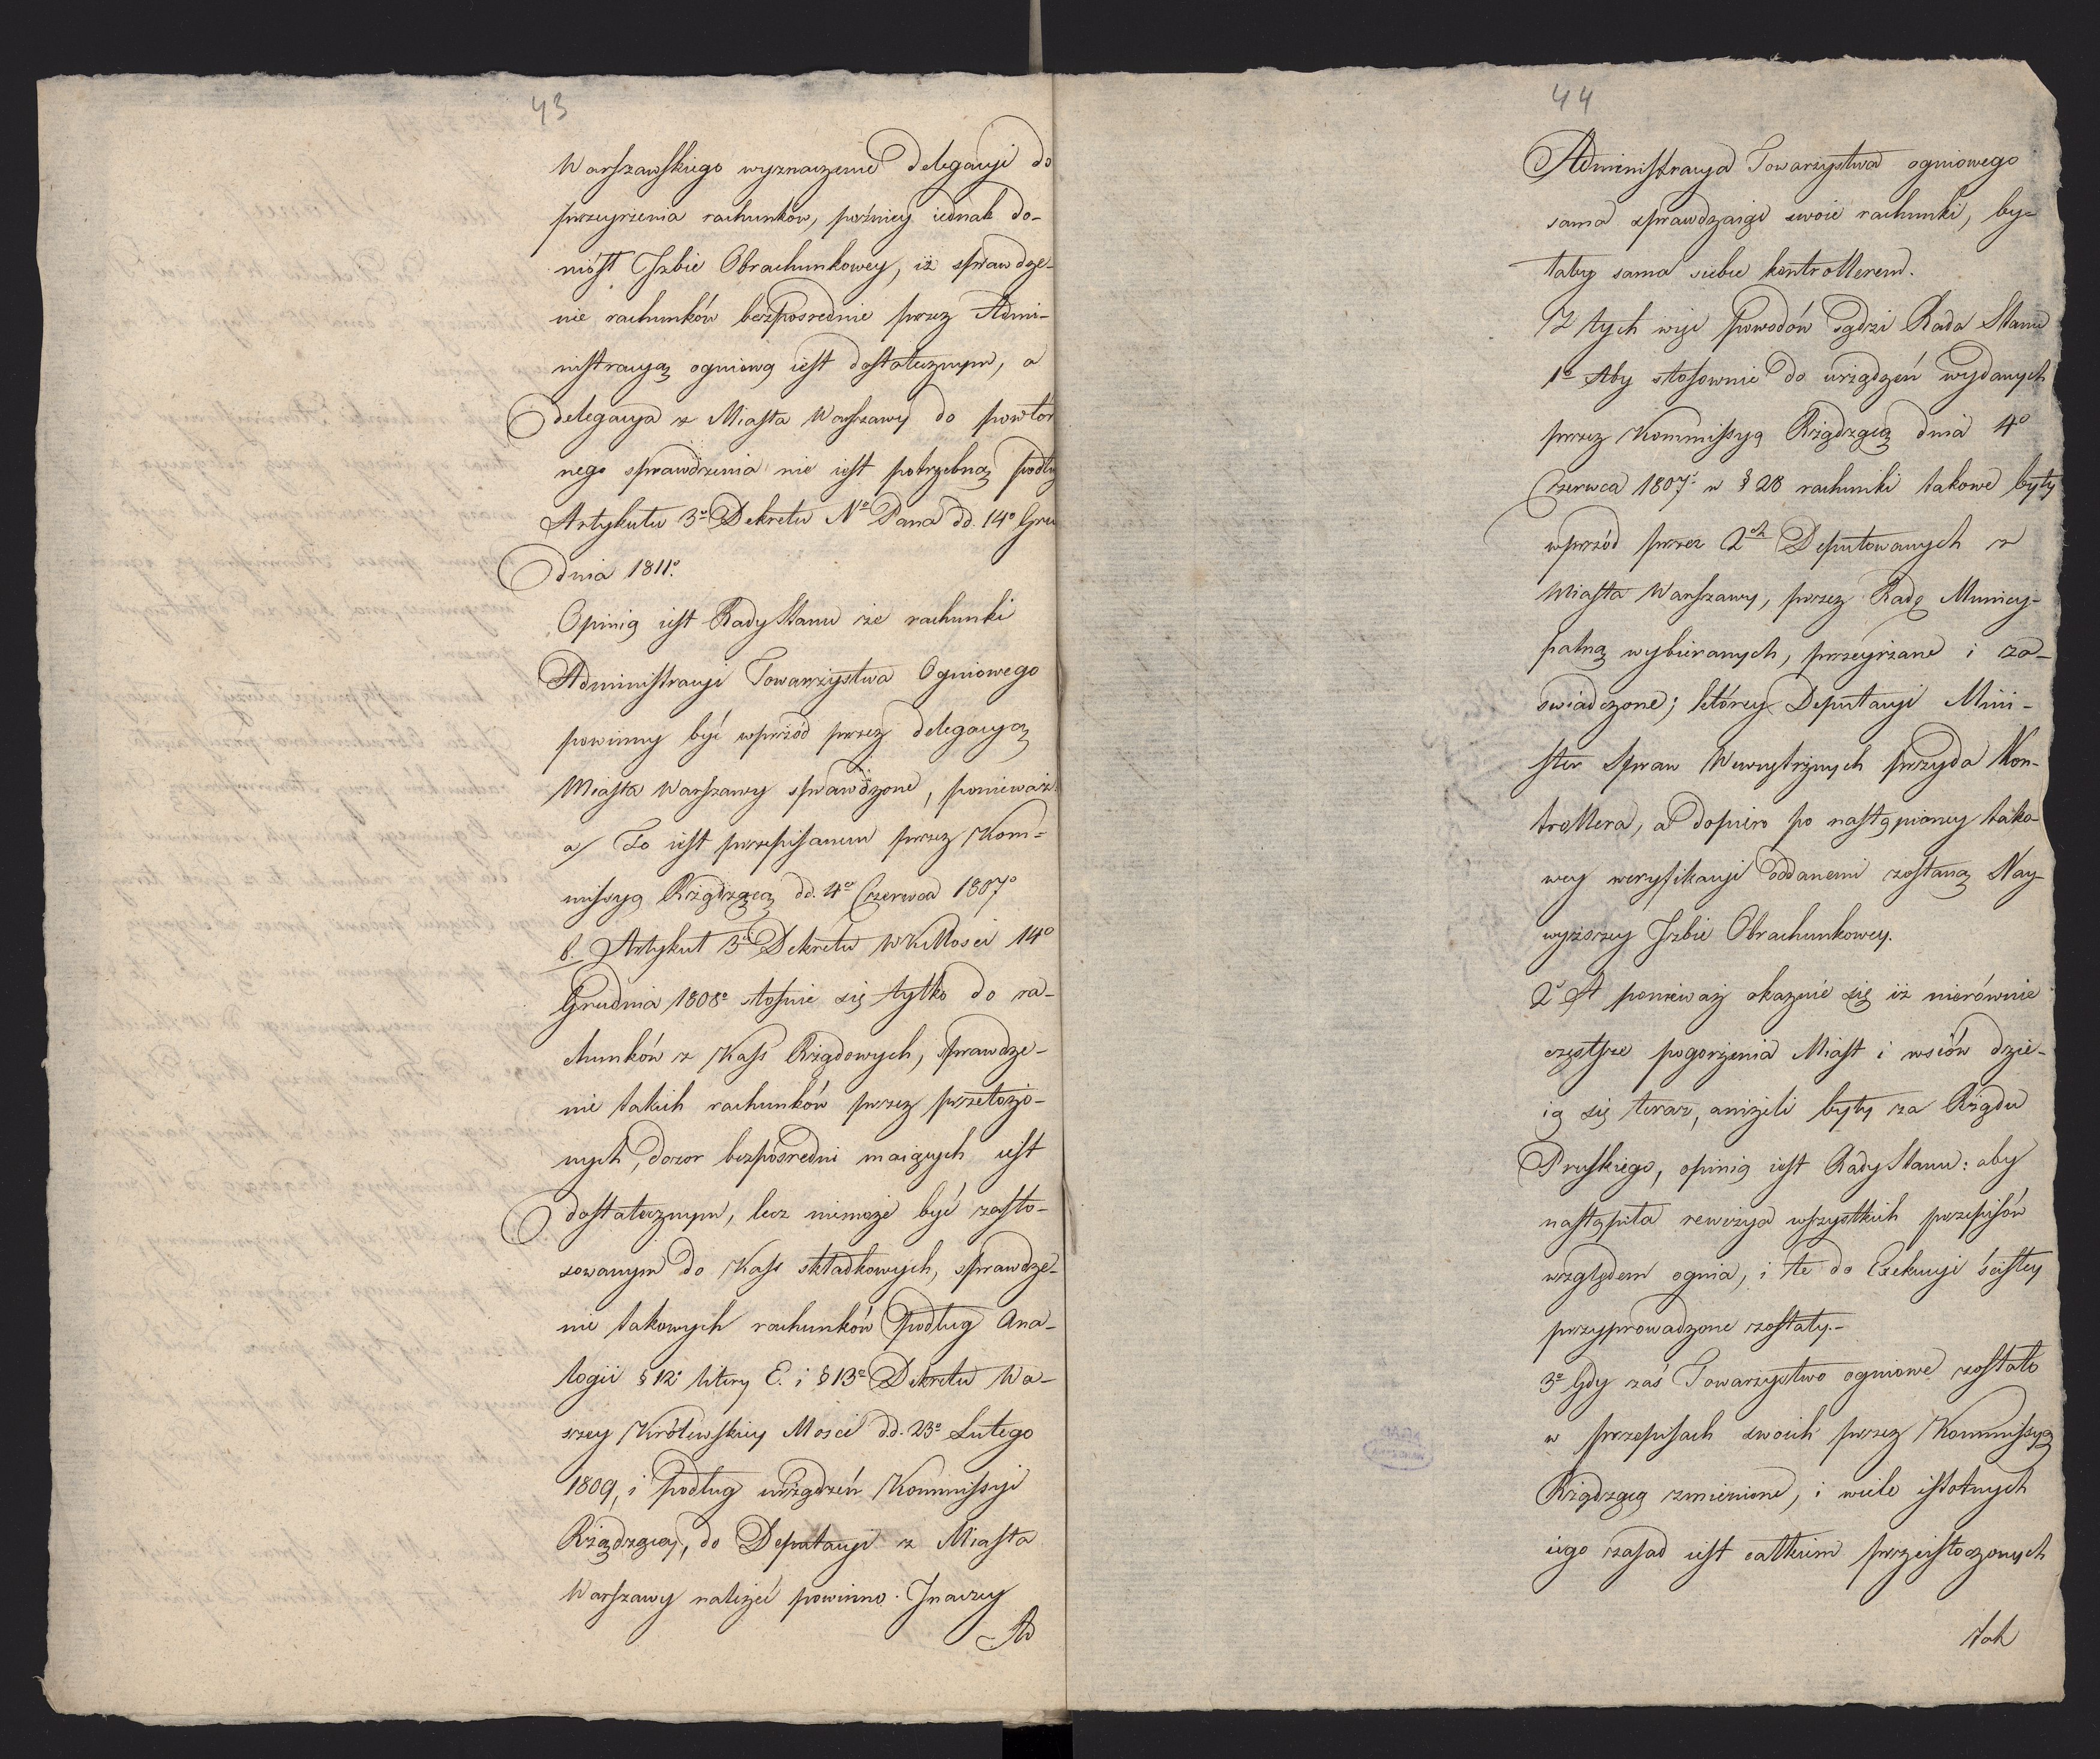 43
Warszawskiego wyznaczenie delegacyi do
przeyrzenia rachunków, poźniey iednak do-
niósł Izbie Obrachunkowey, iż sprawdze-
nie rachunków bezposrednie przez Admi-
nistracyą ogniową iest dostatecznym, a
delegacya z Miasta Warszawy do powtór
nego sprawdzenia nie iest potrzebną podłu
Artykułu 3º Dekretu Nº Pana dd. 14º Gru
dnia 1811º.
Opinią iest Rady Stanu że rachunki
Administracyi Towarzystwa Ogniowego
powinny być wprzód przez delegacyą
Miasta Warszawy sprawdzone, ponieważ
a/ To iest przepisanem przez Kom=
missyą Rządzącą dd. 4º Czerwca 1807º
b. Artykuł 3º Dekretu WKMosci 14º
Grudnia 1808º stosuie się tylko do ra-
chunków z Kass Rządowych, sprawdze-
nie takich rachunków przez przełożo-
nych, dozor bezpośredni maiących iest
dostatecznym, lecz niemoże być zasto-
sowanym do Kass składkowych, sprawdze-
nie takowych rachunków podług Ana-
logii § 12º litery E. i § 13º Dekretu Wa-
szey Królewskiey Mosci dd. 23º Lutego
1809, i podług urządzeń Kommissyi
Rządzącey, do Deputacyi z Miasta
Warszawy należeć powinno. Inaczey
Ad
44
Administracya Towarzystwa ogniowego
sama sprawdzaiąc swoie rachunki, by=
łaby sama siebie kontrollerem.
Z tych więc powodów sądzi Rada Stanu
1º Aby stosownie do urządzeń wydanych
przez Kommissyą Rządzącą dnia 4º
Czerwca 1807º w § 28 rachunki takowe były
wprzód przez 2ch Deputowanych z
Miasta Warszawy, przez Radę Municy-
palną wybieranych, przeyrzane i za-
świadczone; którey Deputacyi Mini-
ster Spraw Wewnętrznych przyda Kon-
trollera, a dopiero po nastąpioney tako-
wey weryfikacyi oddanemi zostaną Nay-
wyższey Izbie Obrachunkowey.
2º A ponieważ okazuie się iż nierównie
częstsze pogorzenia Miast i wsiów dzie-
ią się teraz, aniżeli były za Rządu
Pruskiego, opinią iest Rady Stanu: aby
nastąpiła rewizya wszystkich przepisów
względem ognia, i te do Exekucyi ścisłey
przyprowadzone zostały.-
3º Gdy zaś Towarzystwo ogniowe zostało
w przepisach swoich przez Kommissyą
Rządzącą zmienione, i wiele istotnych
iego zasad iest całkiem przeistoczonych
tak